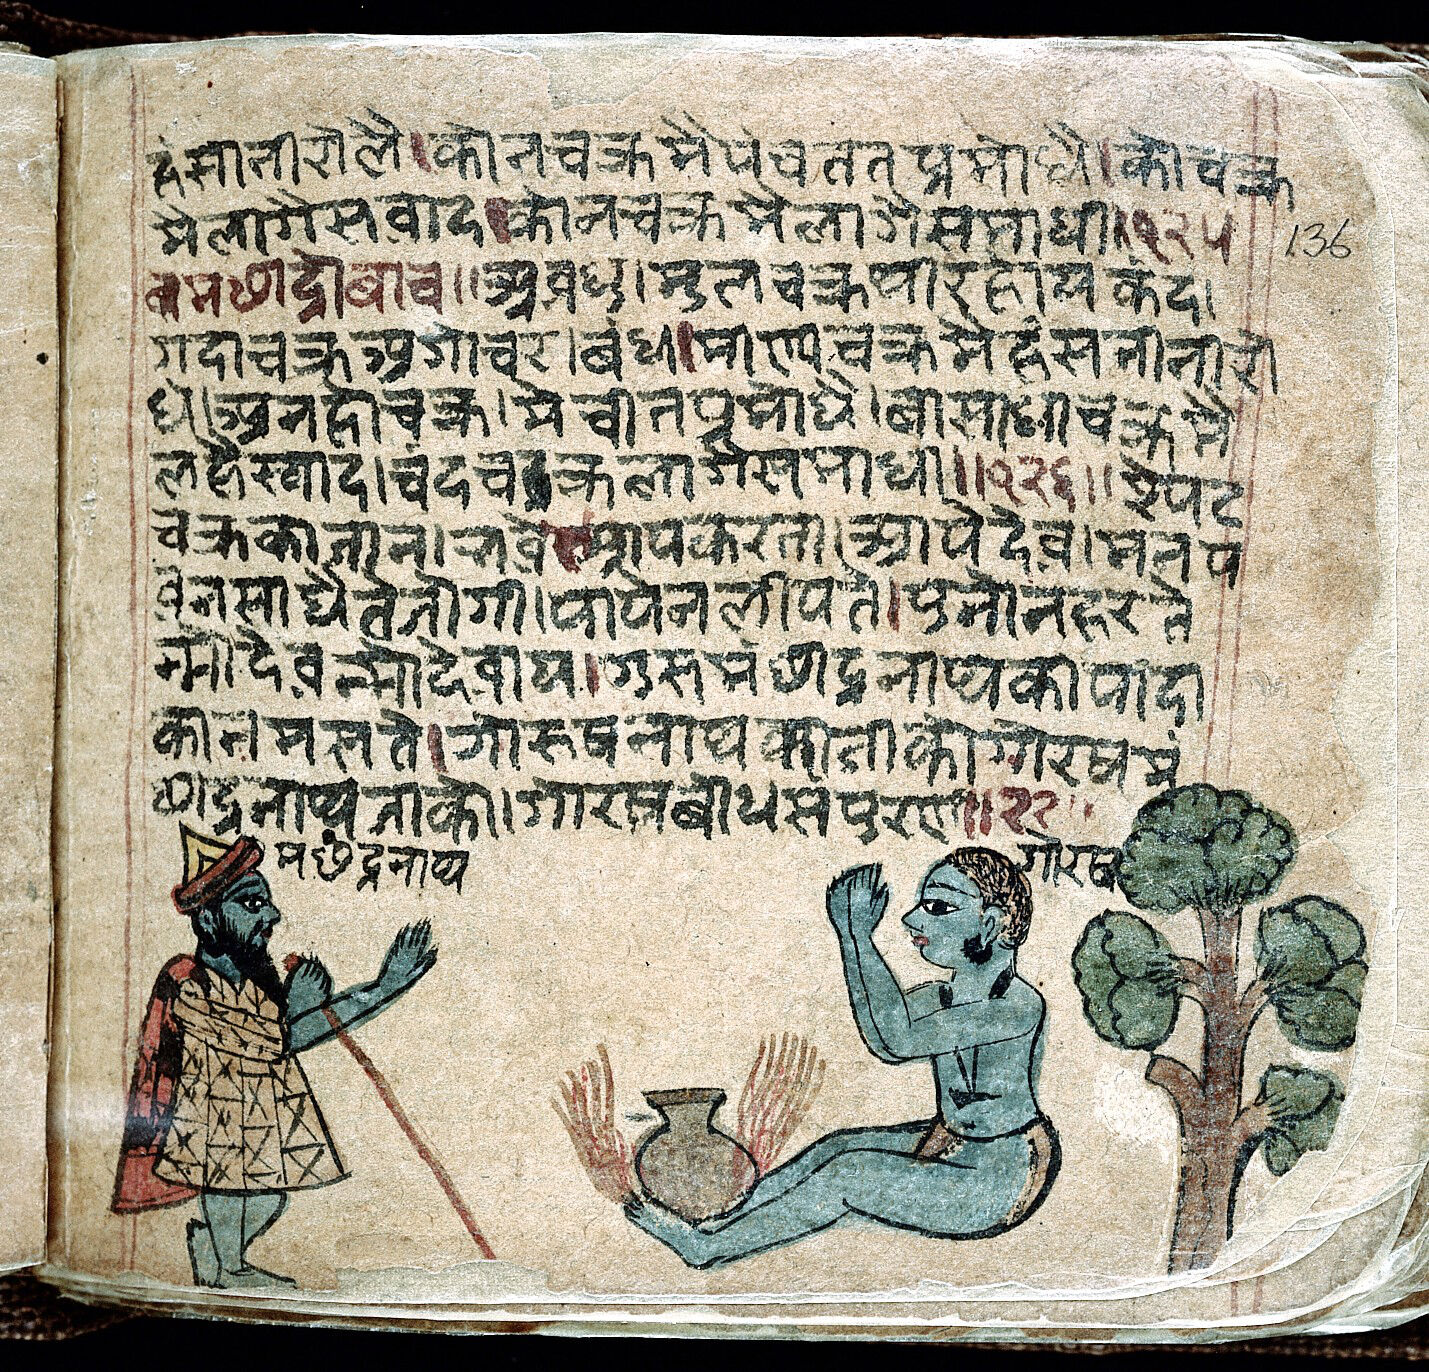 हंसानीरोलै। कोनचक्रमैपंचततप्रमोधै। कोचक्र
मैलागैसवाद। कोनचक्रमैलागैसमाधी॥१२५
136
बमछीद्रोबाच॥ अवधु। मुलचक्रपीरहोयकंद।
गदाचक्रअगोचर। बंध। माणचक्रमैहंसनीनारो
धे। अनहोचक्र। मेचीतप्रमोधै। बीसाधीचक्रमै
लहैस्वाद। चंदचक्रलागैसमाधी॥१२६॥
चक्रकाजान। आपकरता। आपेदेव। मनप
वनसाधैतेजोगी। पापेनलीपते। पुनोनहरते
नमोदेवनमोदेवाय। गुरूमंछीद्रनाथकापादा
कानमसते। गोरुषनाथकाजीकोगोरषमं
छीद्रनाथजीको। गोरषबोधसपुरण॥२२॥
मछंद्रनाथ
गोरष